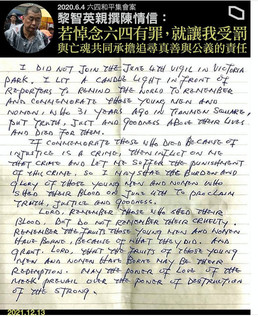 2020.6.4 六四和平集會案
黎智英親撰陳情信：
若悼念六四有罪，就讓我受罰
與亡魂共同承擔追尋真善與公義的責任
I DID NOT JOIN THE JUNE 4TH VIGIL IN VICTORIA
PARK. I LIT A CANDLE LIGHT IN FRONT OF
REPORTERS TO REMIND THE WORLD TO REMEMBER
AND COMMEMORATE THOSE YOUNG MEN AND
WOMEN, WHO 31 YEARS AGO IN TIANMEN SQUARE,
PUT TRUTH, JUST AND GOODNESS ABOVE THEIR LIVES
AND DIED FOR THEM.
IF COMMEMORATE THOSE WHO DIED BECAUSE OF
INJUSTICE IS A CRIME, THEN INFLICT ON ME
THAT CRIME AND LET ME SUFFER THE PUNISHMENT
OF THIS CRIME, SO I MAY SHARE THE BURDEN AND
GLORY OF THOSE YOUNG MEN AND WOMEN WHO
SHED THEIR BLOOD ON JUNE 4TH TO PROCLAIM
TRUTH, JUSTICE AND GOODNESS.
LORD, REMEMBER THOSE WHO SHED THEIR
BLOOD, BUT DO NOT REMEMBER THEIR CRUELTY.
REMEMBER THE FRUITS THOSE YOUNG MEN AND WOMEN
HAVE BORNE, BECAUSE OF WHAT THEY DID, AND
GRANT, LORD, THAT THE FRUITS OF THOSE YOUNG
MEN AND WOMEN HAVE BORNE MAY BE THEIR
REDEMPTION. MAY THE POWER OF LOVE OF THE
MEEK PREVAIL OVER THE POWER OF DESTRUCTION
OF THE STRONG.
2021.12.13